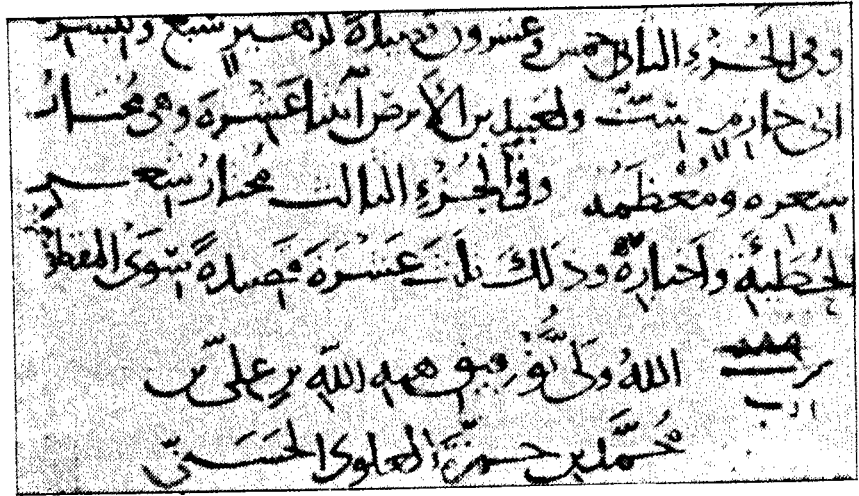 وفي الجُزءِ الثاني خمس وعشرون قصيدةً لزهير سَبع ولبِشر بن
ابى خازم سِتّ ولعَبِيد بن الأبرص اثنتا عَشْرة وهى مُختارُ
شعره ومُعْظَمُه وفي الجُزءِ الثالث مُختارُ شِعر
الحُطَيْئَةِ وأخبارُهُ وذلكَ ثلثَ عَشْرَةَ قَصِيدةً سِوَى المقطوع
اللهُ ولَىُّ تَوْفيق هبه اللّه بن علىّ بن
مُحَمَّد بن حمزَةَ العلوى الحَسَنىّ